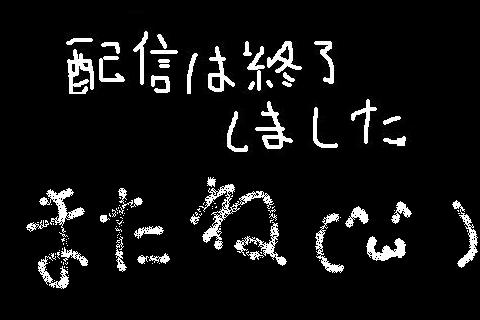 配信は終了
しました
またね(^ω^)